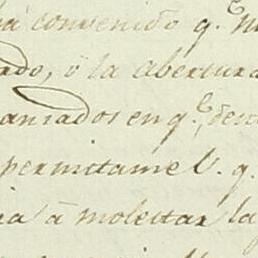 convenido q.e
ado, ó la abertura
ansados en q.e, des
permitame V. q.
ia à molestar la